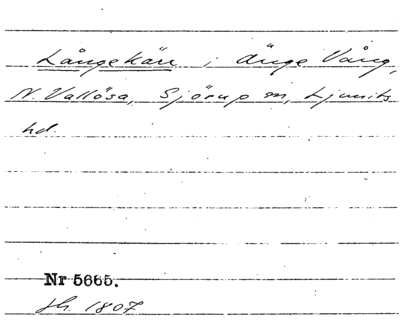 Långekärr i Änge Vång,
N. Vallösa, Sjörup sn, Ljunits
hd.
Nr 5665.
sk. 1807